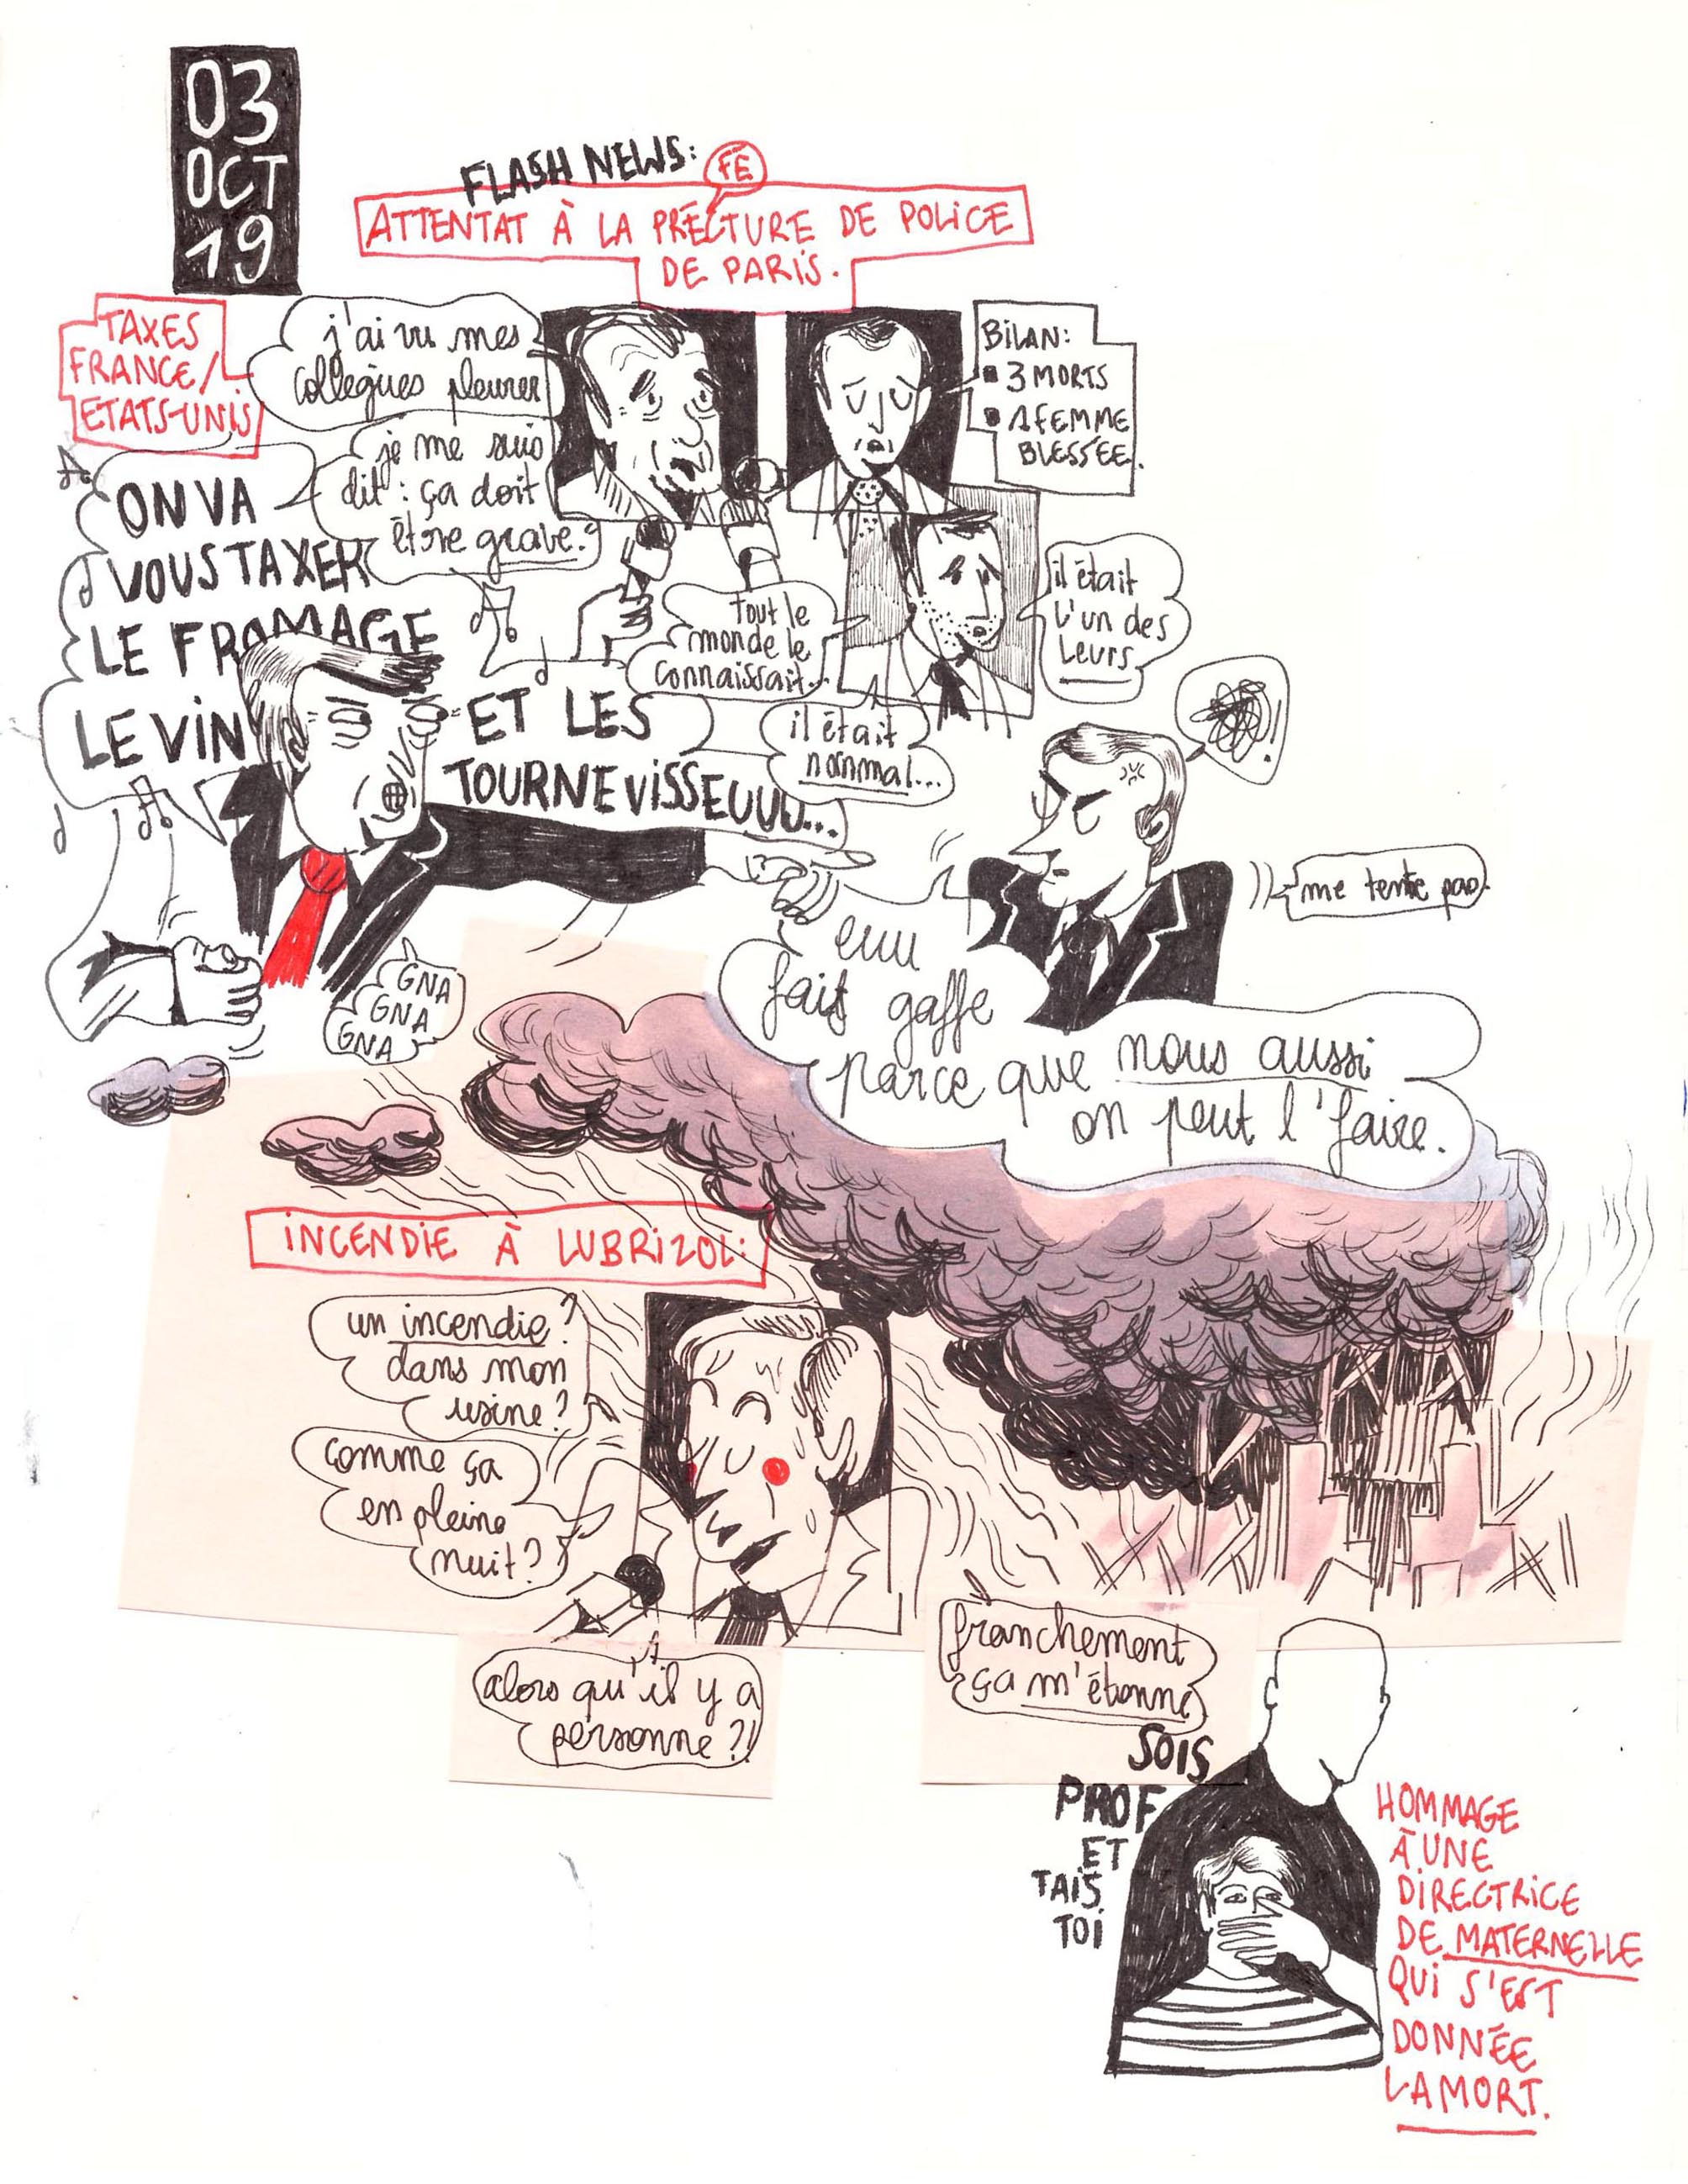 03
OCT
19
FLASH NEWS:
FÉ
ATTENTAT À LA PRÉCTURE DE POLICE
DE PARIS.
TAXES
FRANCE/
ETATS-UNIS
j'ai vu mes
collègues pleurer
je me suis
dit : ça doit
être grave.
BILAN:
▪ 3 MORTS
▪ 1 FEMME
BLESSÉE.
tout le
monde le
connaissait...
il était
l'un des
leurs
il était
normal...
ON VA
VOUS TAXER
LE FROMAGE
LE VIN
ET LES
TOURNEVISSEUUU...
GNA
GNA
GNA
!
me tente pas.
euu
fais gaffe
parce que nous aussi
on peut l'faire.
INCENDIE À LUBRIZOL:
un incendie?
dans mon
usine?
comme ça
en pleine
nuit?
alors qu'il y a
personne?!
franchement
ça m'étonne
SOIS
PROF
ET
TAIS
TOI
HOMMAGE
À UNE
DIRECTRICE
DE MATERNELLE
QUI S'EST
DONNÉE
LA MORT.